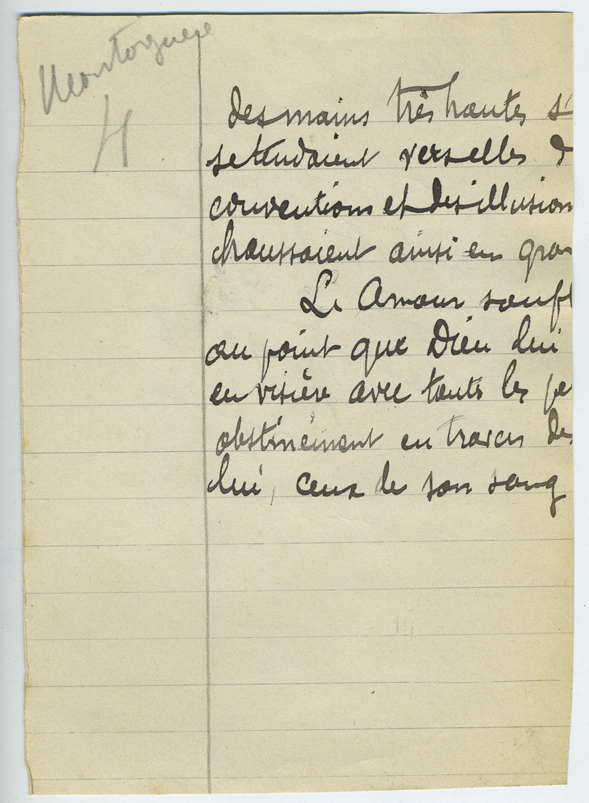 Montorgueil
4
des mains très hautes s'
se tendaient vers elles d
conventions et des illusion
chaussaient ainsi en gran
Le Amour souffl
au point que Dieu lui
en visière avec toutes les pe
obstinément en travers des
lui, ceux de son sang